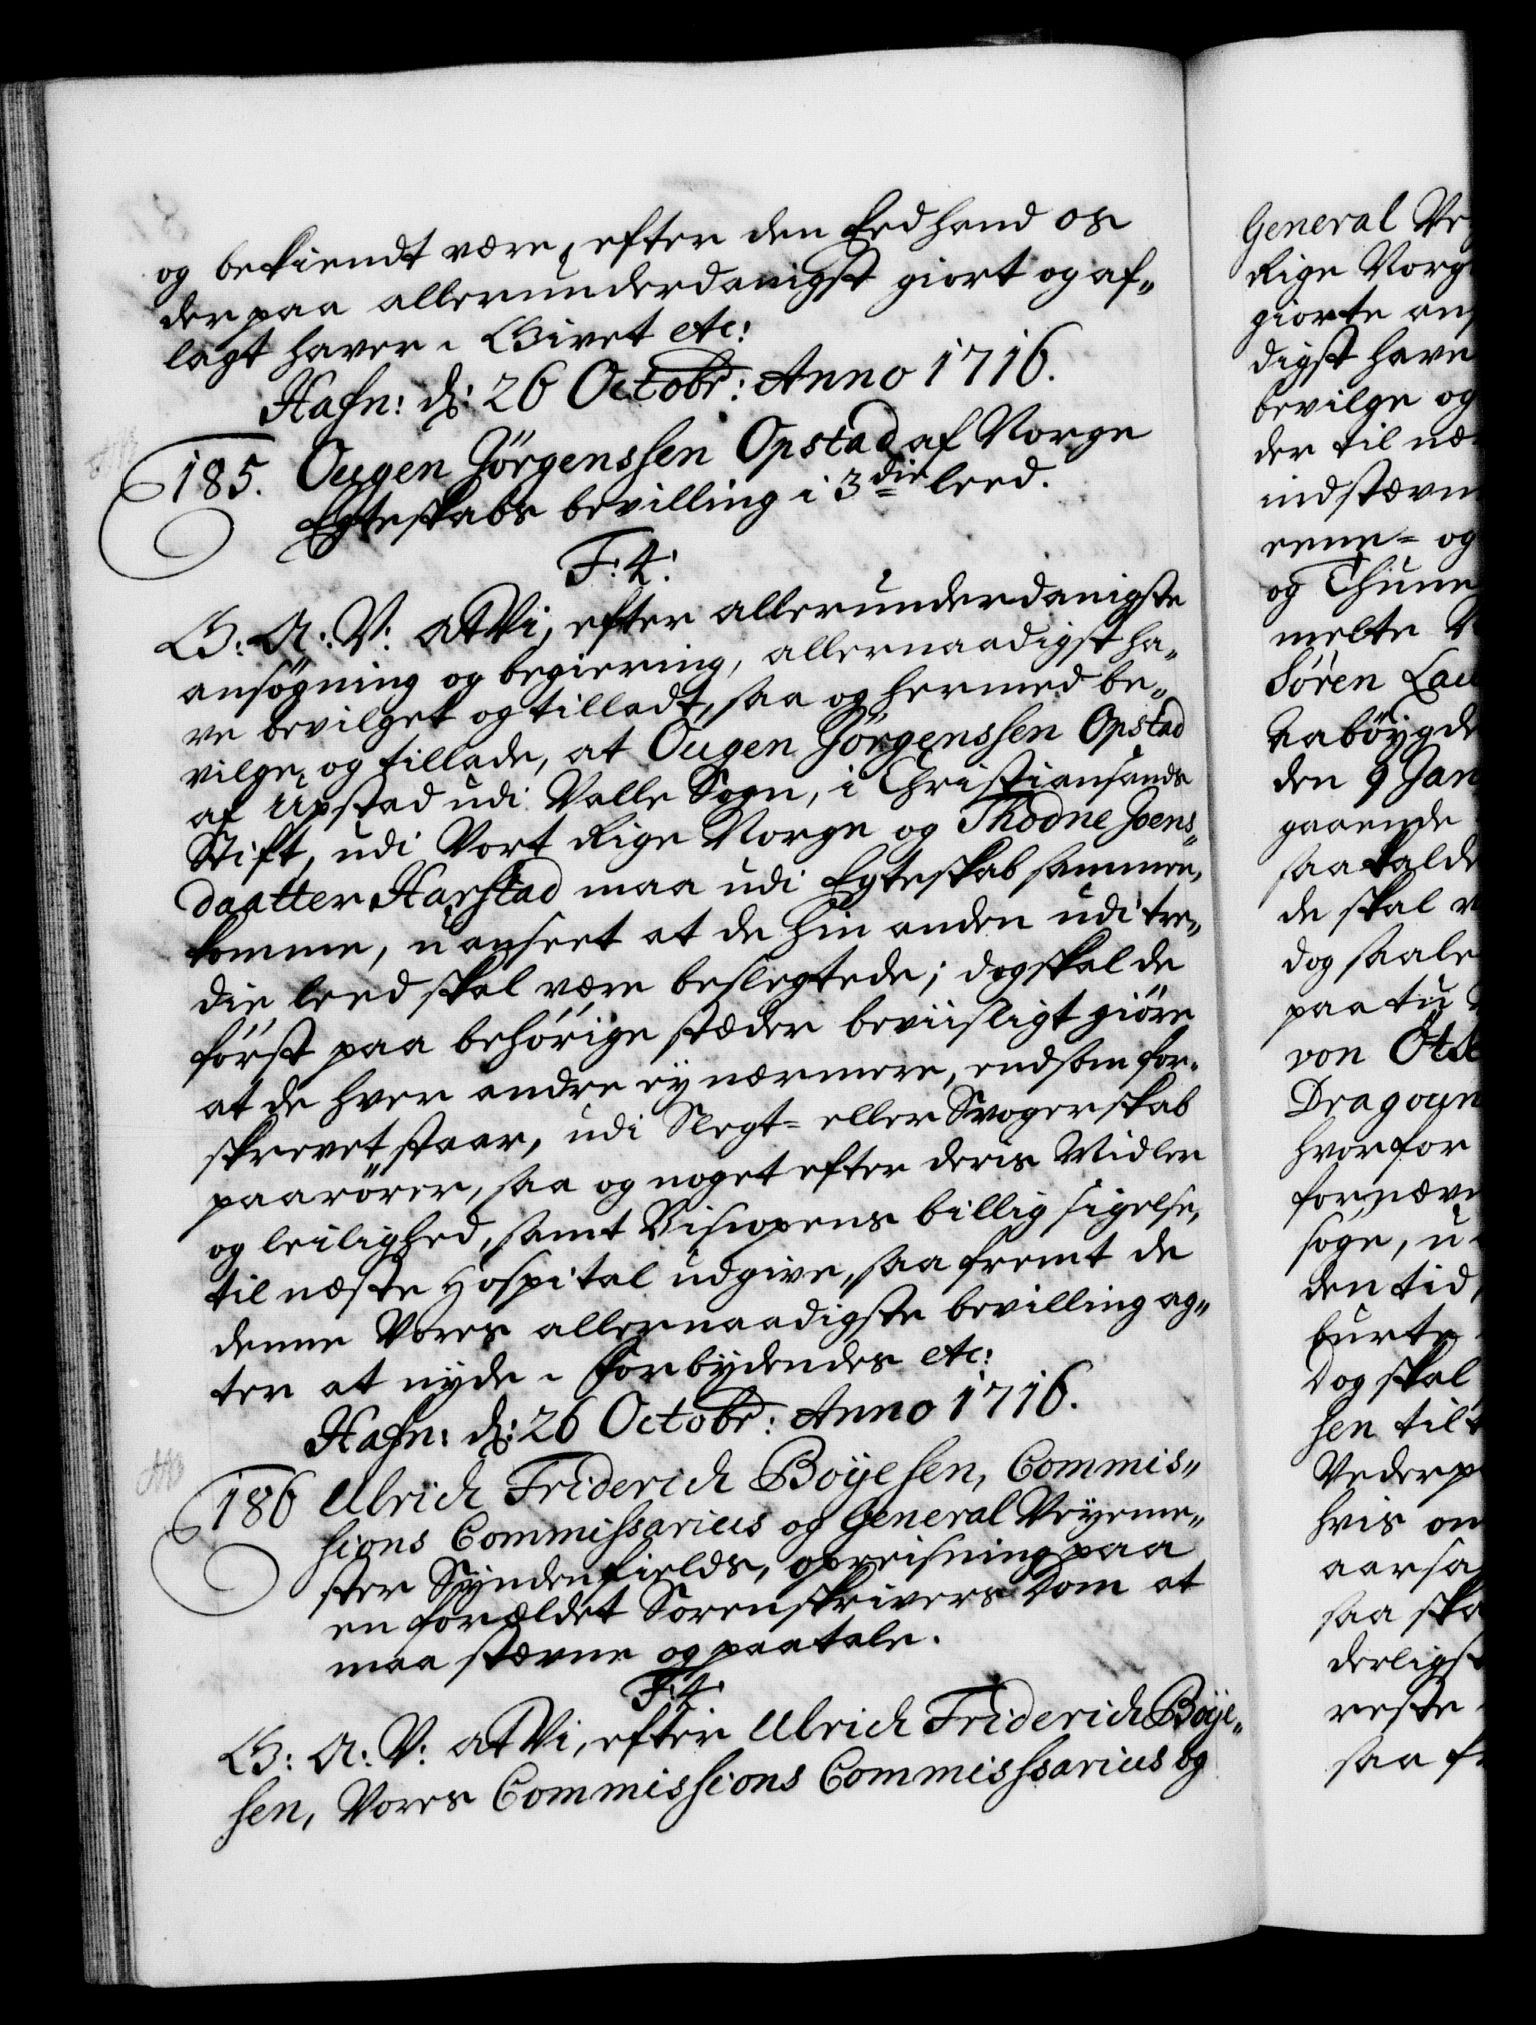 og bekiendt være, efter den Eed hand os
der paa allerunderdanigst giort og af„
lagt haver. Givet etc:
Hafn: d: 26 Octobr: Anno 1716.
185. Ougen Jörgenssen Opstad af Norge
Egteskabs bevilling i 3die leed.
F: 4:
G: A: V: at Vi, efter allerunderdanigste
ansøgning og begiering, allernaadigst ha„
ve bevilget og tilladt, saa og hermed be„
vilge og tillade, at Ougen Jörgenssen Opstad
af Upstad udi Valle Sogn, i Christiansands
Stift, udi Vort Rige Norge og Thodne Joens„
daatter Harstad maa udi Egteskab sammen„
komme, uanseet at de hin anden udi tre„
die leed skal være beslegtede; dog skal de
först paa behörige stæder beviisligt giöre
at de hver andre ey nærmere, end som for„
skrevet staar, udi Slegt= eller Svogerskab
paarörer, saa og noget efter deris Midler
og leilighed, samt Biscopens billig sigelse,
til næste Hospital udgive, saa fremt de
denne Vores allernaadigste bevilling ag„
ter at nyde. Forbydendes etc:
Hafn: d: 26 Octobr: Anno 1716.
186 Ulrich Friderich Böyesen, Commis„
sions Commissarius og General Veyeme„
ster Syndenfields, opreisning paa
en forældet Sorenskrivers Dom at
maa stævne og paatale.
F: 4:
G: A: V: at Vi, efter Ulrich Friderich Böye„
sen, Vores Commissions Commissarius og
General Ve
Rige Norg
giorte an
digst have
bevilge og
der til næ
indstævn
eene= og
og Thune
melte
Sören Lau
Aabøygde
den 9 Jan
gaaende
saa kalde
de skal
dog saale
paa tu
von Ötk
Dragoun
hvorfor
fornævn
søge, u
den tid,
burte
Dog skal
sen til
Vederp
hvis on
aarsa
saa ska
derligst
reste
saa f